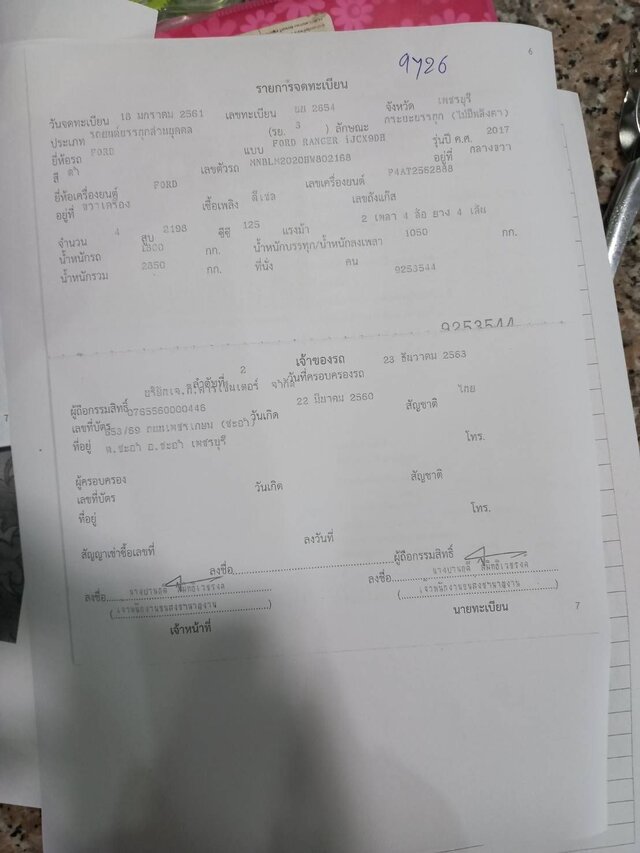 9726
6
รายการจดทะเบียน
วันจดทะเบียน 18 มกราคม 2561 เลขทะเบียน ผผ 2654 จังหวัด เพชรบุรี
ประเภท รถยนต์บรรทุกส่วนบุคคล (รย. 3 ) ลักษณะ กระบะบรรทุก (ไม่มีหลังคา)
ยี่ห้อรถ FORD แบบ FORD RANGER iJCX9DH รุ่นปี ค.ศ. 2017
สี ดำ เลขตัวรถ MNBLM2020HW802168 อยู่ที่ กลางขวา
ยี่ห้อเครื่องยนต์ FORD เลขเครื่องยนต์ P4AT2562888
อยู่ที่ ขวาเครื่อง เชื้อเพลิง ดีเซล เลขถังแก๊ส
จำนวน 4 สูบ 2198 ซีซี 125 แรงม้า 2 เพลา 4 ล้อ ยาง 4 เส้น
น้ำหนักรถ 1800 กก. น้ำหนักบรรทุก/น้ำหนักลงเพลา 1050 กก.
น้ำหนักรวม 2850 กก. ที่นั่ง คน 9253544
9253544
เจ้าของรถ
ลำดับที่ 2 วันที่ครอบครองรถ 23 ธันวาคม 2563
ผู้ถือกรรมสิทธิ์ จำกัด
เลขที่บัตร 0765560000446 วันเกิด 22 มีนาคม 2560 สัญชาติ ไทย
ที่อยู่ 853/59 ถนนเพชรเกษม (ชะอำ) โทร.
ต.ชะอำ อ.ชะอำ เพชรบุรี
ผู้ครอบครอง
เลขที่บัตร วันเกิด สัญชาติ
ที่อยู่ โทร.
สัญญาเช่าซื้อเลขที่ ลงวันที่ ผู้ถือกรรมสิทธิ์
ลงชื่อ
ลงชื่อ ลงชื่อ
(เจ้าพนักงานขนส่งชำนาญงาน) (เจ้าพนักงานขนส่งชำนาญงาน)
เจ้าหน้าที่ นายทะเบียน
7
7